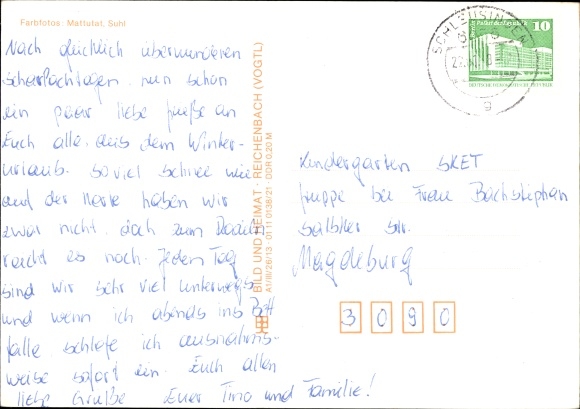 Farbfotos: Mattutat, Suhl
Nach glücklich überwundenen
Scharlachtagen nun schon
ein paar liebe Grüße an
Euch alle aus dem Winter-
urlaub. Soviel Schnee wie
auf der Karte haben wir
zwar nicht, doch zum Rodeln
reicht es noch. Jeden Tag
sind wir sehr viel unterwegs
und wenn ich abends ins Bett
falle, schlafe ich ausnahms-
weise sofort ein. Euch allen
liebe Grüße Euer Tino und Familie!
BILD UND HEIMAT · REICHENBACH (VOGTL)
A1/III/26/13 01 11 0136/21 · DDR 0,20 M
SCHLEUSINGEN
10
DEUTSCHE DEMOKRATISCHE REPUBLIK
Kindergarten SKET
Gruppe bei Frau
Salbker Str.
Magdeburg
3 0 9 0